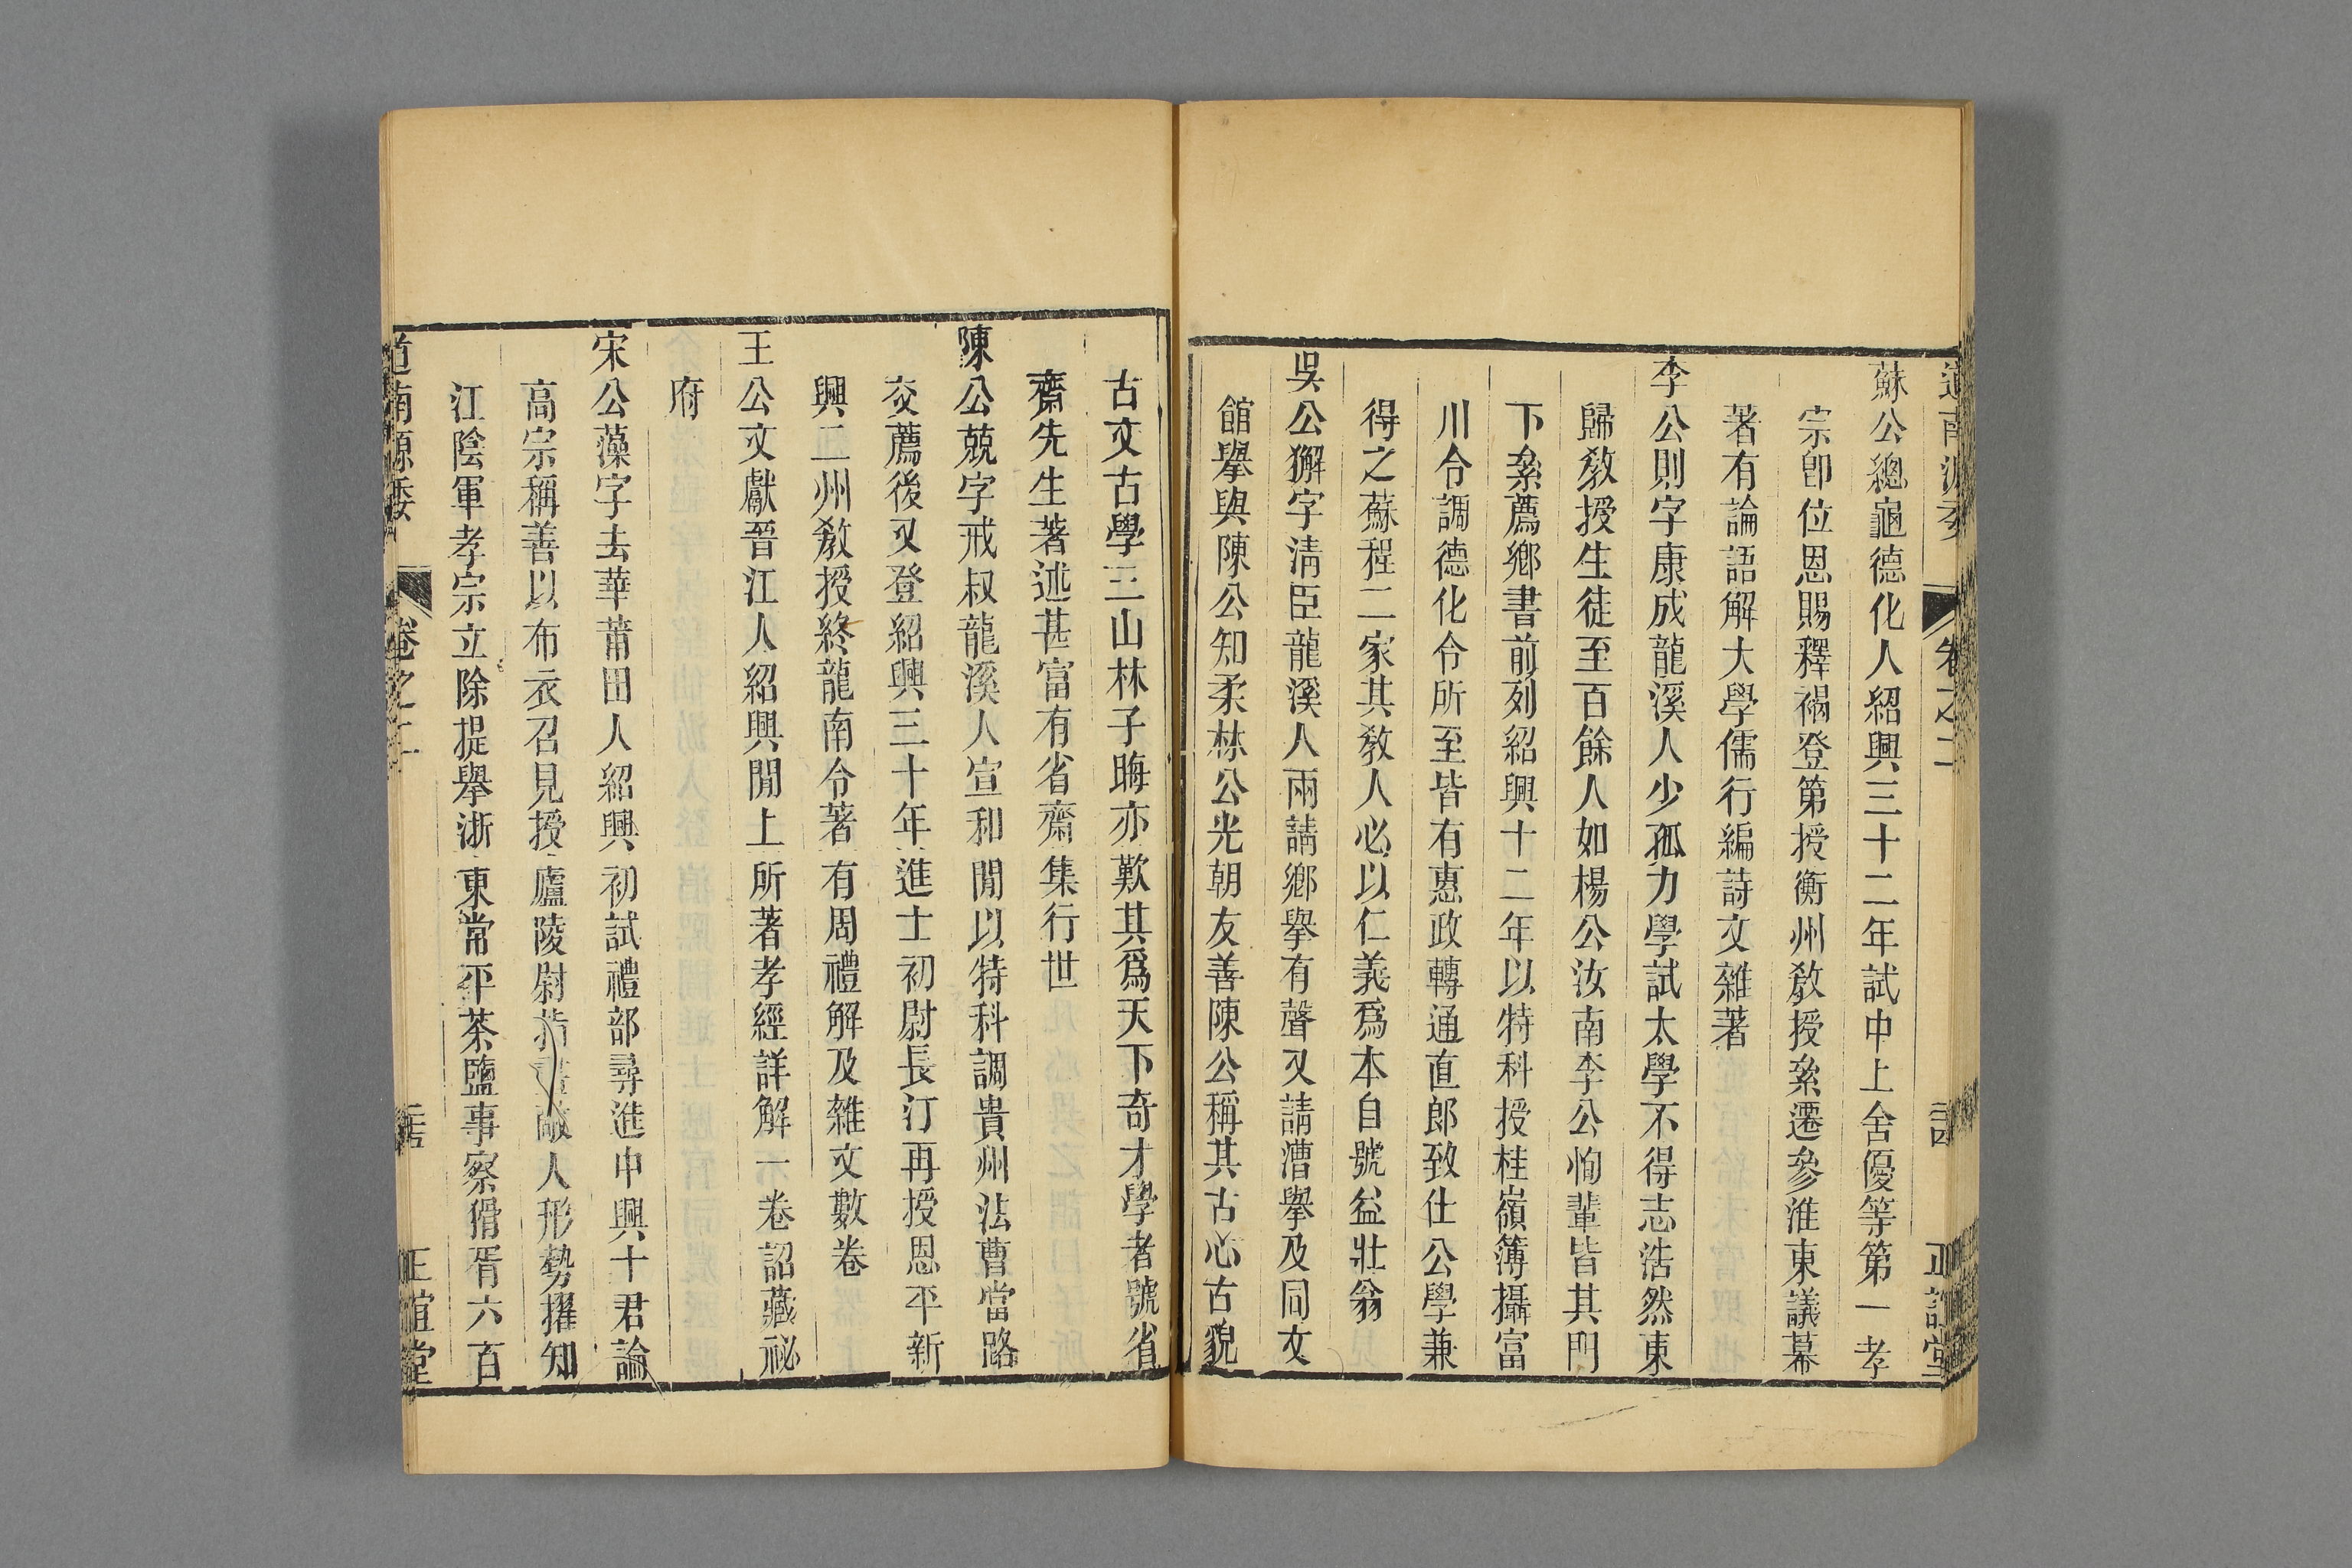 蘇公總龜德化人紹興三十二年試中上舍優等第一孝
宗卽位恩賜釋褐登第授衡州敎授累遷參淮東議幕
著有論語解大學儒行編詩文雜著
李公則字康成龍溪人少孤力學試太學不得志浩然東
歸敎授生徒至百餘人如楊公汝南李公恂輩皆其門
下累薦鄉書前列紹興十二年以特科授桂嶺簿攝富
川令調德化令所至皆有惠政轉通直郎致仕公學兼
得之蘇程二家其敎人必以仁義爲本自號益壯翁
吳公獬字淸臣龍溪人兩請鄉舉有聲又請漕舉及同文
館舉與陳公知柔林公光朝友善陳公稱其古心古貌
古文古學三山林子晦亦歎其爲天下奇才學者號省
齋先生著述甚富有省齋集行世
陳公兢字戒叔龍溪人宣和閒以特科調貴州法曹當路
交薦後又登紹興三十年進士初尉長汀再授恩平新
興二州敎授終龍南令著有周禮解及雜文數卷
王公文獻晉江人紹興閒上所著孝經詳解一卷詔藏祕
府
宋公藻字去華莆田人紹興初試禮部尋進中興十君論
高宗稱善以布衣召見授廬陵尉指畫敵人形勢擢知
江陰軍孝宗立除提舉浙東常平茶鹽事察猾胥六百
道南源委 卷之二 正誼堂